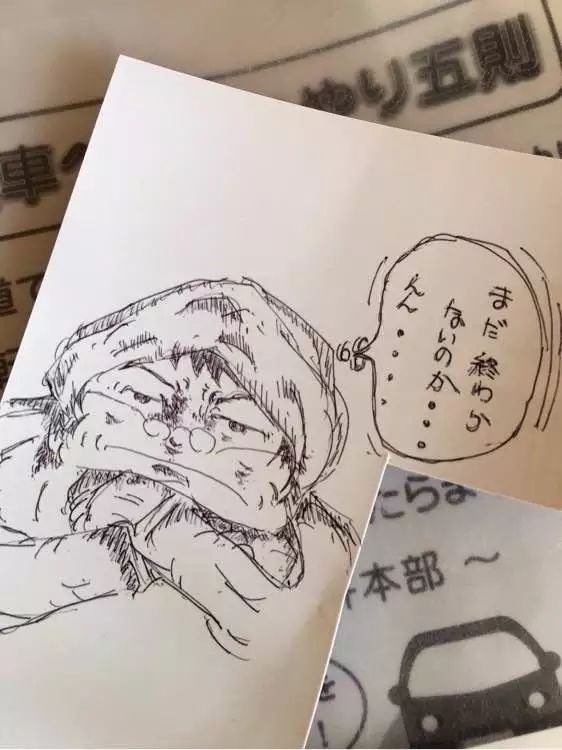 やり五則
車へ
まだ 終わか
ないのか・・・
んん・・・・
たらま
本部 ～
を
！